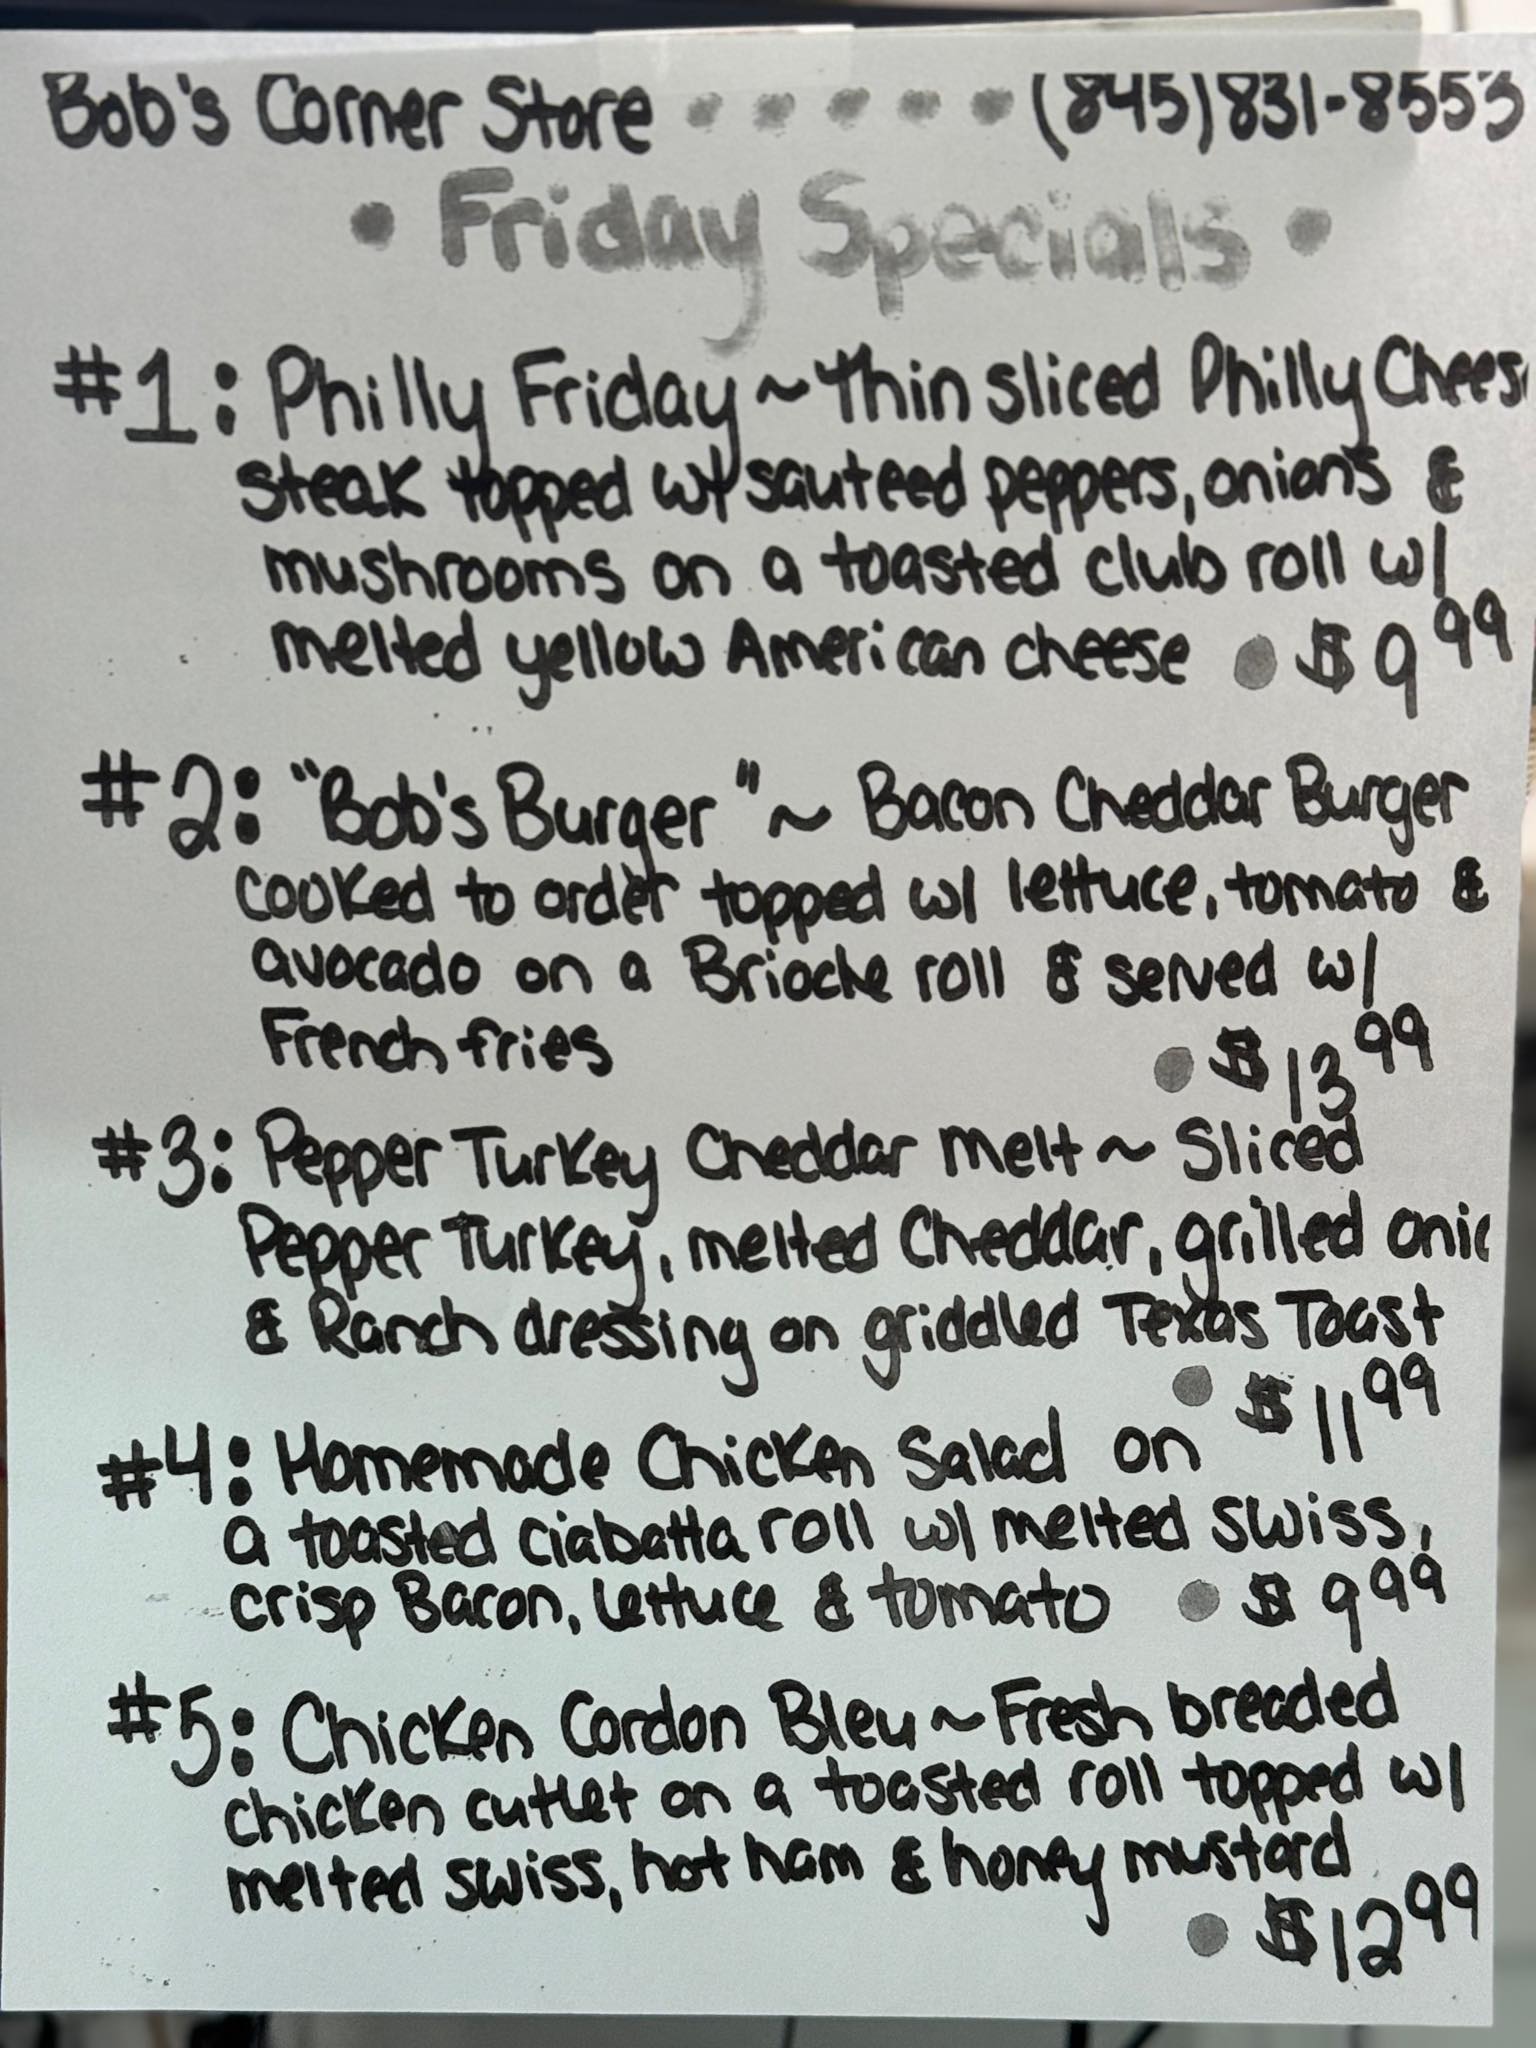 Bob's Corner Store • • • • • (845)831-8553
• Friday Specials •
#1: Philly Friday ~ thin sliced Philly Chees
steak topped w/ sauteed peppers, onions &
mushrooms on a toasted club roll w/
melted yellow American cheese • $9.99
#2: "Bob's Burger" ~ Bacon Cheddar Burger
cooked to order topped w/ lettuce, tomato &
avocado on a Brioche roll & served w/
French fries • $13.99
#3: Pepper Turkey Cheddar Melt ~ Sliced
Pepper Turkey, melted Cheddar, grilled onio
& Ranch dressing on griddled Texas Toast
• $11.99
#4: Homemade Chicken Salad on
a toasted ciabatta roll w/ melted swiss,
crisp Bacon, lettuce & tomato • $9.99
#5: Chicken Cordon Bleu ~ Fresh breaded
chicken cutlet on a toasted roll topped w/
melted swiss, hot ham & honey mustard
• $12.99